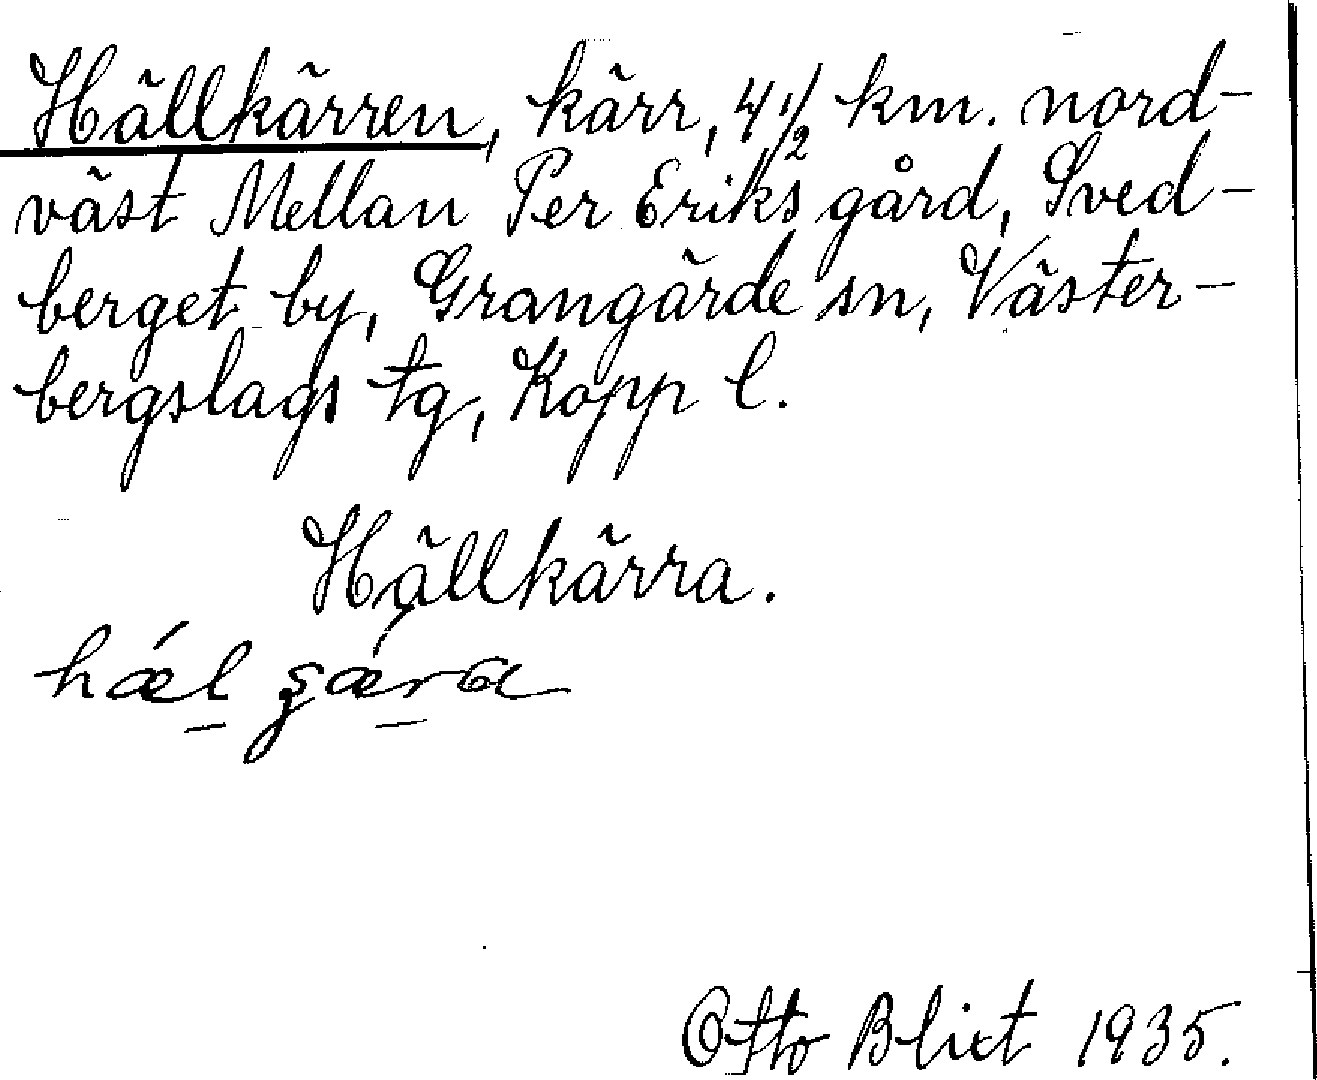 Hällkärren, kärr, 4 1/2 km. nord-
väst Mellan Per Eriks gård, Sved-
berget by, Grangärde sn, Väster-
bergslags tg, Kopp l.
Hällkärra.
hǽl
Otto Blixt 1935.